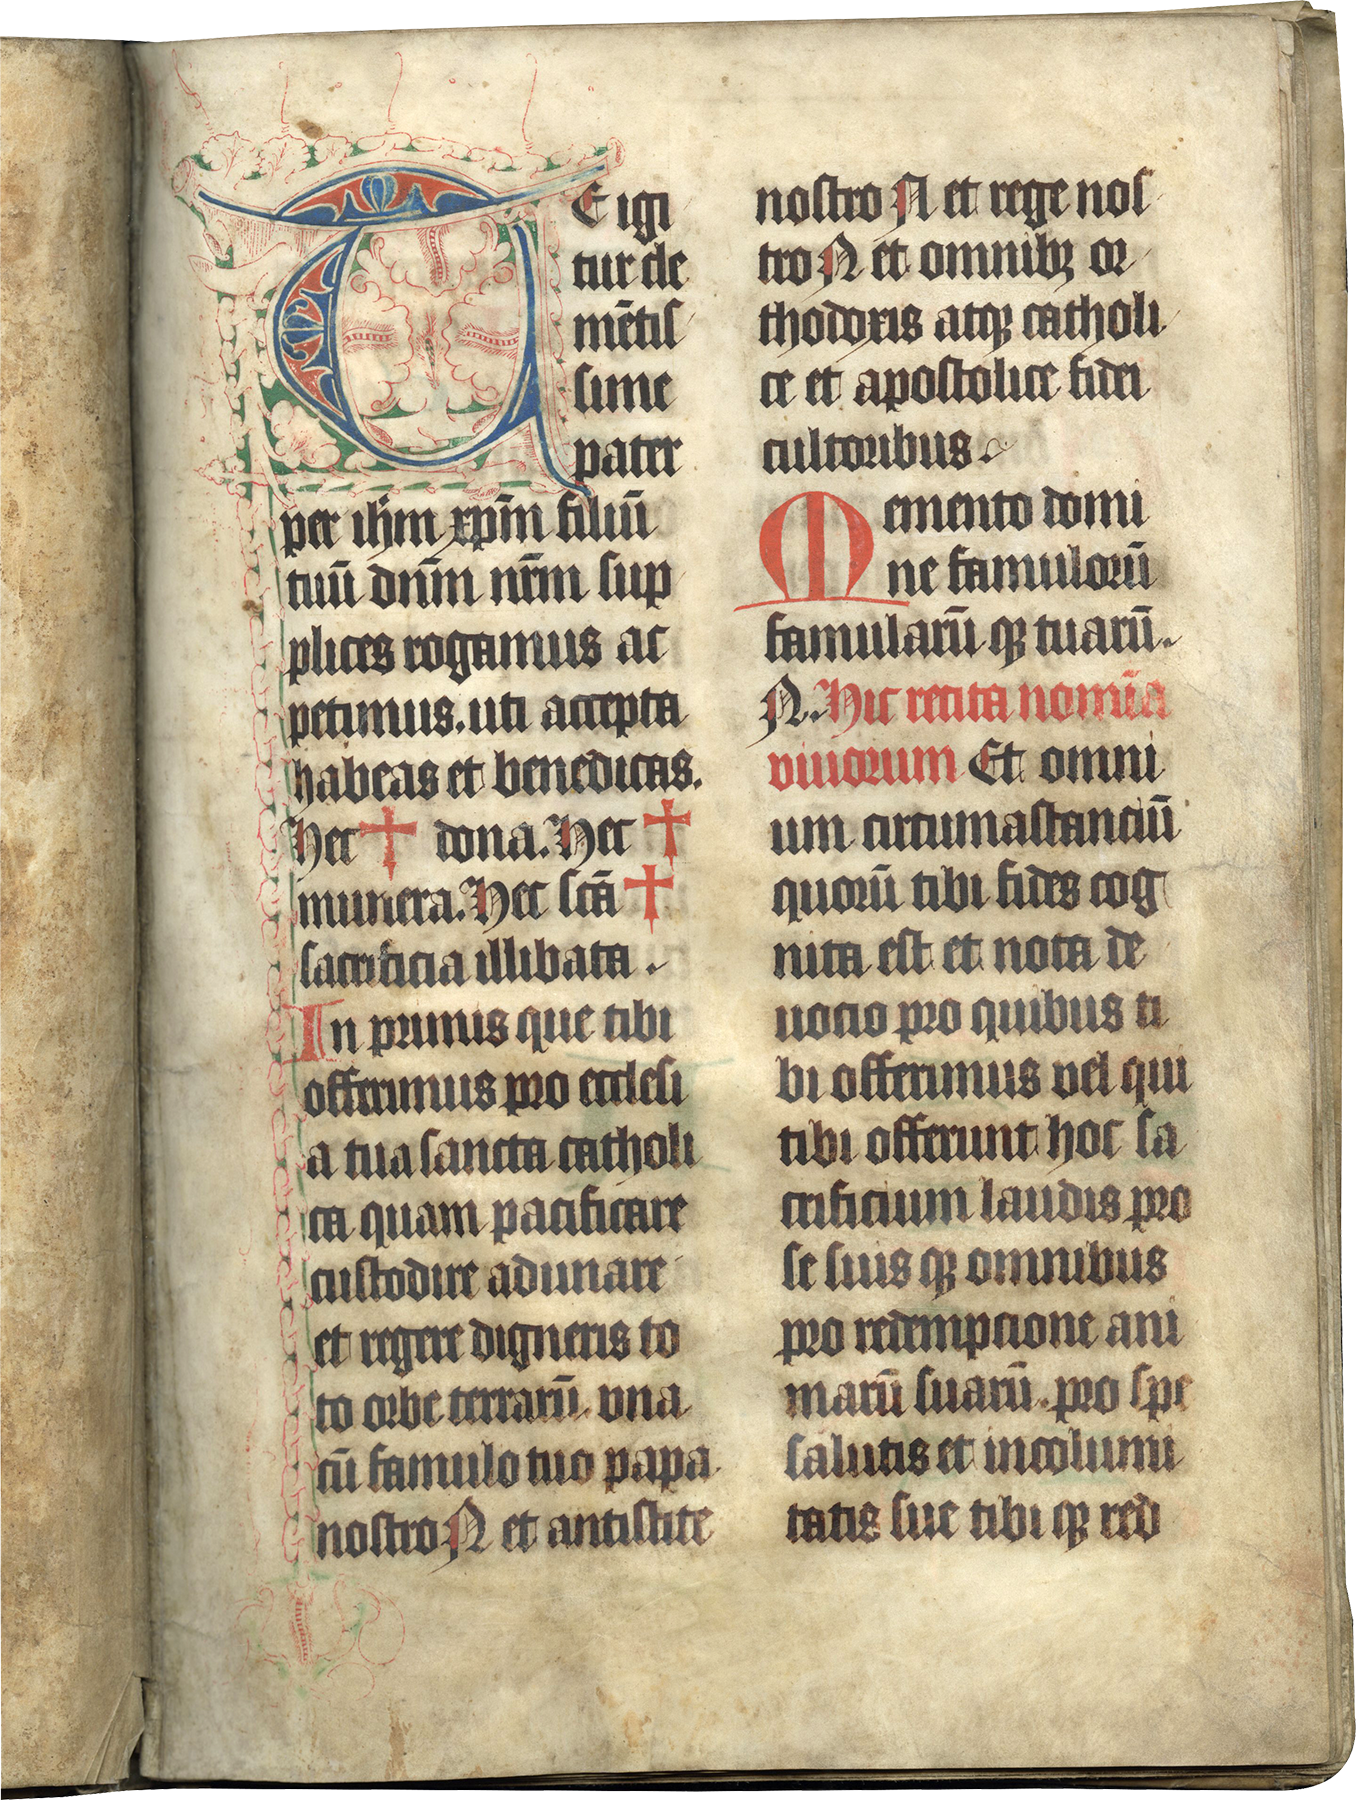 TE igi
tur de
mētis
sime
pater
per ihm xpm̄ filiū
tuū dnm̄ nrm̄ sup
plices rogamus ac
petimus. uti accepta
habeas et benedicas.
Hec ✝ dona. Hec ✝
munera. Hec scā ✝
sacrificia illibata.
In primis que tibi
offerimus pro ecclesi
a tua sancta catholi
ca quam pacificare
custodire adunare
et regere digneris to
to orbe terrarū. vna
cū famulo tuo papa
nostro N et antistite
nostro N et rege nos
tro N et omnibꝫ or
thodoxis atqꝫ catholi
ce et apostolice fidei
cultoribus.
Memento domi
ne famulorū
famularū qꝫ tuarū.
N. Hic recita nomīa
viuorum Et omni
um circumastanciū
quorū tibi fides cog
nita est et nota de
uocio pro quibus ti
bi offerimus vel qui
tibi offerunt hoc sa
crificium laudis pro
se suis qꝫ omnibus
pro redempcione ani
marū suarū. pro spe
salutis et incolumi
tatis sue tibi qꝫ red